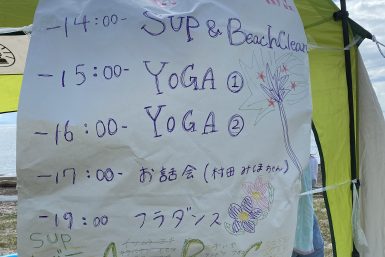 -14:00- SUP & BeachClean
-15:00- YOGA ①
-16:00- YOGA ②
-17:00- お話会 (村田 みほちゃん)
-19:00 フラダンス
SUP